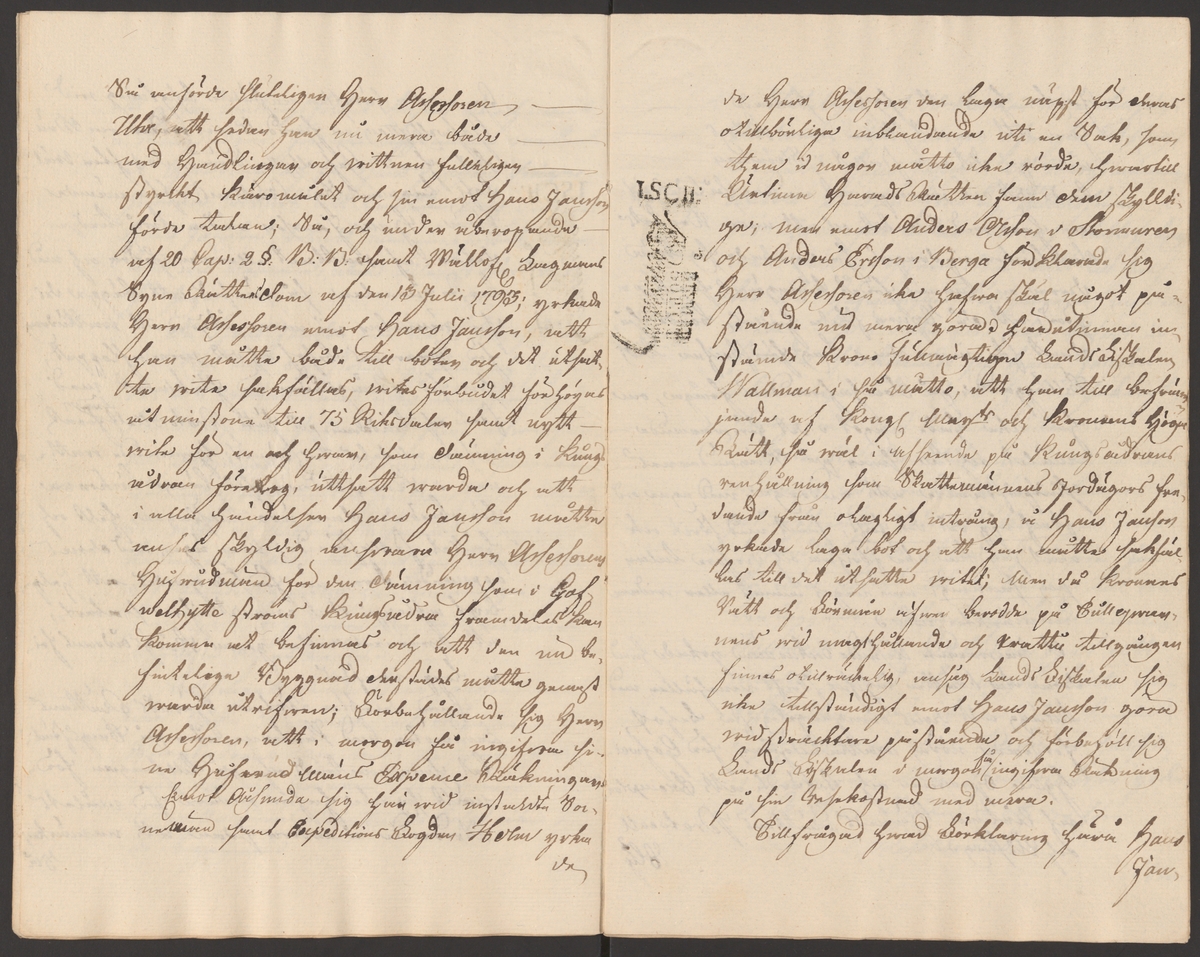 Så anförde sluteligen Herr Assessoren
Uhr, att sedan han nu mera både
med Handlingar och wittnen fullkligen
styrkt Käromålet och sin emot Hans Jansson
förde talan; Så, och under åberopande
af 20 Cap: 2 §. B: B: samt Wällofl. Lagmans
Syne Rättens Dom af den 13 Julii 1793; yrkade
Herr Assessoren emot Hans Jansson, att
han måtte både till böter och det utsat-
te wite sakfällas, witesförbudet förhöjas
åtminstone till 75 Riksdaler samt nytt
wite för en och hwar, som dämning i Kungs
ådran företog, uttsatt warda och att
i alla händelser Hans Jansson måtte
anses skyldig answara Herr Assessorens
Hufwudman för den dämning som i
ströms Kungsådra framdeles kan
komma att befinnas och att den nu be-
finteliga Byggnad derstädes måtte genast
warda utrifwen; Förbehållande sig Herr
Assessoren, att i morgon få ingifwa si-
ne Hufwudmäns Expence Räkningar.
Emot Arhunda sig här wid instälde Soc-
nemän samt Expeditions Fogden Helm yrka
de
de Herr Assessoren den Laga näpst för deras
otillbörliga inblandande uti en Sak, som
them i någor måtto icke rörde, hwartill
Kärlinen Härads Rätten fann dem skylldi-
ge; men emot Anders Olsson i Stormuren
och Anders Ersson i Berga förklarade sig
Herr Assessoren icke hafwa skäl något på-
stående nu mera göra; Hwarutinnan in-
stämde Krono fullmägtigen Landsfiskalen
Wallman i så måtto, att han till befräm-
jande af Kongl. Maijts och Kronans Höga
Rätt, så wäl i afseende på Kungsådrans
renhållning som Skattemännens Jordägors fre-
dande från olagligt intrång, å Hans Jansson
yrkade laga bot och att han måtte sakfäl-
las till det utsatte witet; Men då Kronans
Rätt och Förmån äfwen berodde på Tullqwar-
nens wid magthållande och wattu tillgången
finnes otillräckelig, ansåg Landsfiskalen sig
icke tillständigt emot Hans Jansson göra
widsträcktare påstående och förbehöll sig
Lands Fiskalen i morgon få ingifwa Räkning
på sin Resekostnad med mera.
Tillfrågad hwad Förklaring härå Hans
Jan-
I.SCH: